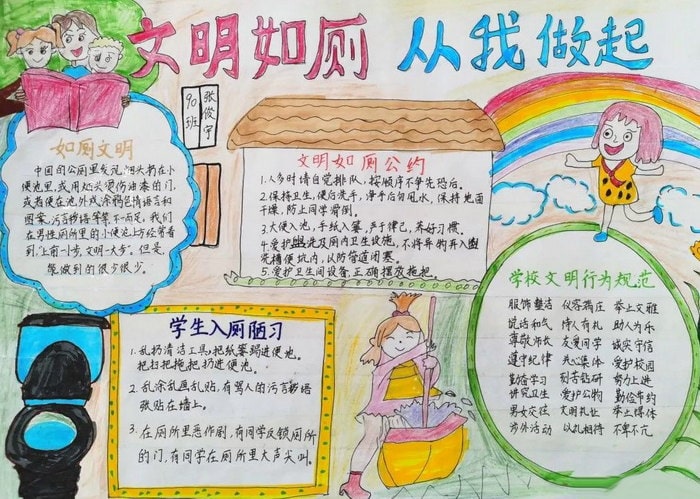 文明如厕 从我做起
90班
张俊宇
如厕文明
中国的公厕里发现,烟头扔在小
便池里,或用烟头烫伤油漆的门,
或者便在池外,或涂鸦色情语言和
图案,污言秽语等等不一而足,我们
在男性厕所里的小便池上方经常看
到“上前一小步,文明一大步”。但是,
能做到的很少很少。
文明如厕公约
1.人多时请自觉排队,按顺序不争先恐后。
2.保持卫生,便后洗手,净手后勿甩水,保持地面
干燥,防止同学滑倒。
3.大便入池,手纸入篓,严于律己,养好习惯。
4.爱护盥洗及厕内卫生设施,不将异物弃入盥
洗槽便坑内,以防管道闭塞。
5.爱护卫生间设备,正确摆放拖把。
学生入厕陋习
1.乱扔清洁工具,把纸篓踢进便池。
把扫把拖把扔进便池。
2.乱涂乱画乱贴,有骂人的污言秽语
张贴在墙上。
3.在厕所里恶作剧,有同学反锁厕所
的门,有同学在厕所里大声尖叫。
学校文明行为规范
服饰整洁 仪容端庄 举止文雅
说话和气 待人有礼 助人为乐
尊敬师长 友爱同学 诚实守信
遵守纪律 关心集体 爱护校园
勤俭学习 刻苦钻研 努力上进
讲究卫生 爱护公物 勤俭节约
男女交往 文明礼让 举止得体
涉外活动 以礼相待 不卑不亢